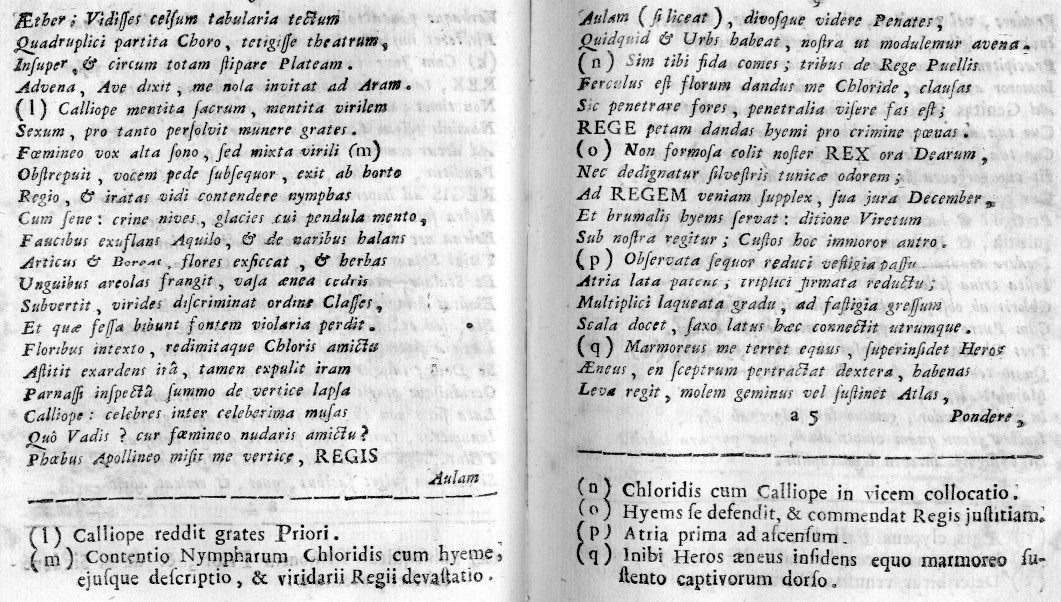 Æther; Vidiſſes celſum tabularia tectum
Quadruplici partita Choro, tetigiſſe theatrum,
Inſuper, & circum totam ſtipare Plateam.
Advena, Ave dixit, me nola invitat ad Aram.
(l) Calliope mentita ſacrum, mentita virilem
Sexum, pro tanto perſolvit munere grates.
Fœmineo vox alta ſono, ſed mixta virili (m)
Obſtrepuit, vocem pede ſubſequor, exit ab horto
Regio, & iratas vidi contendere nymphas
Cum ſene: crine nives, glacies cui pendula mento,
Faucibus exuflans Aquilo, & de naribus halans
Articus & Boreas, flores exſiccat, & herbas
Unguibus areolas frangit, vaſa ænea cedris
Subvertit, virides diſcriminat ordine Claſſes,
Et quæ feſſa bibunt fontem violaria perdit.
Floribus intexto, redimitaque Chloris amictu
Aſtitit exardens irâ, tamen expulit iram
Parnaſſi inſpectâ ſummo de vertice lapſa
Calliope: celebres inter celeberima muſas
Quô Vadis? cur fæmineo nudaris amictu?
Phœbus Apollineo miſit me vertice, REGIS
Aulam
(l) Calliope reddit grates Priori.
(m) Contentio Nympharum Chloridis cum hyeme,
ejuſque deſcriptio, & viridarii Regii devaſtatio.
Aulam (ſi liceat), divoſque videre Penates;
Quidquid & Urbs habeat, noſtra ut modulemur avena.
(n) Sim tibi fida comes; tribus de Rege Puellis
Ferculus eſt florum dandus me Chloride, clauſas
Sic penetrare fores, penetralia viſere fas eſt;
REGE petam dandas hyemi pro crimine pœnas.
(o) Non formoſa colit noſter REX ora Dearum,
Nec dedignatur ſilveſtris tunicæ odorem;
Ad REGEM veniam ſupplex, ſua jura December,
Et brumalis hyems ſervat: ditione Viretum
Sub noſtra regitur; Cuſtos hoc immoror antro.
(p) Obſervata ſequor reduci veſtigia paſſu
Atria lata patent; triplici firmata reductu;
Multiplici laqueata gradu; ad faſtigia greſſum
Scala docet, ſaxo latus hæc connectit utrumque.
(q) Marmoreus me terret equus, ſuperinſidet Heros
Æneus, en ſceptrum pertractat dextera, habenas
Leva regit, molem geminus vel ſuſtinet Atlas,
a 5 Pondere,
(n) Chloridis cum Calliope in vicem collocatio.
(o) Hyems ſe defendit, & commendat Regis juſtitiam.
(p) Atria prima ad aſcenſum.
(q) Inibi Heros æneus inſidens equo marmoreo ſu-
ſtento captivorum dorſo.